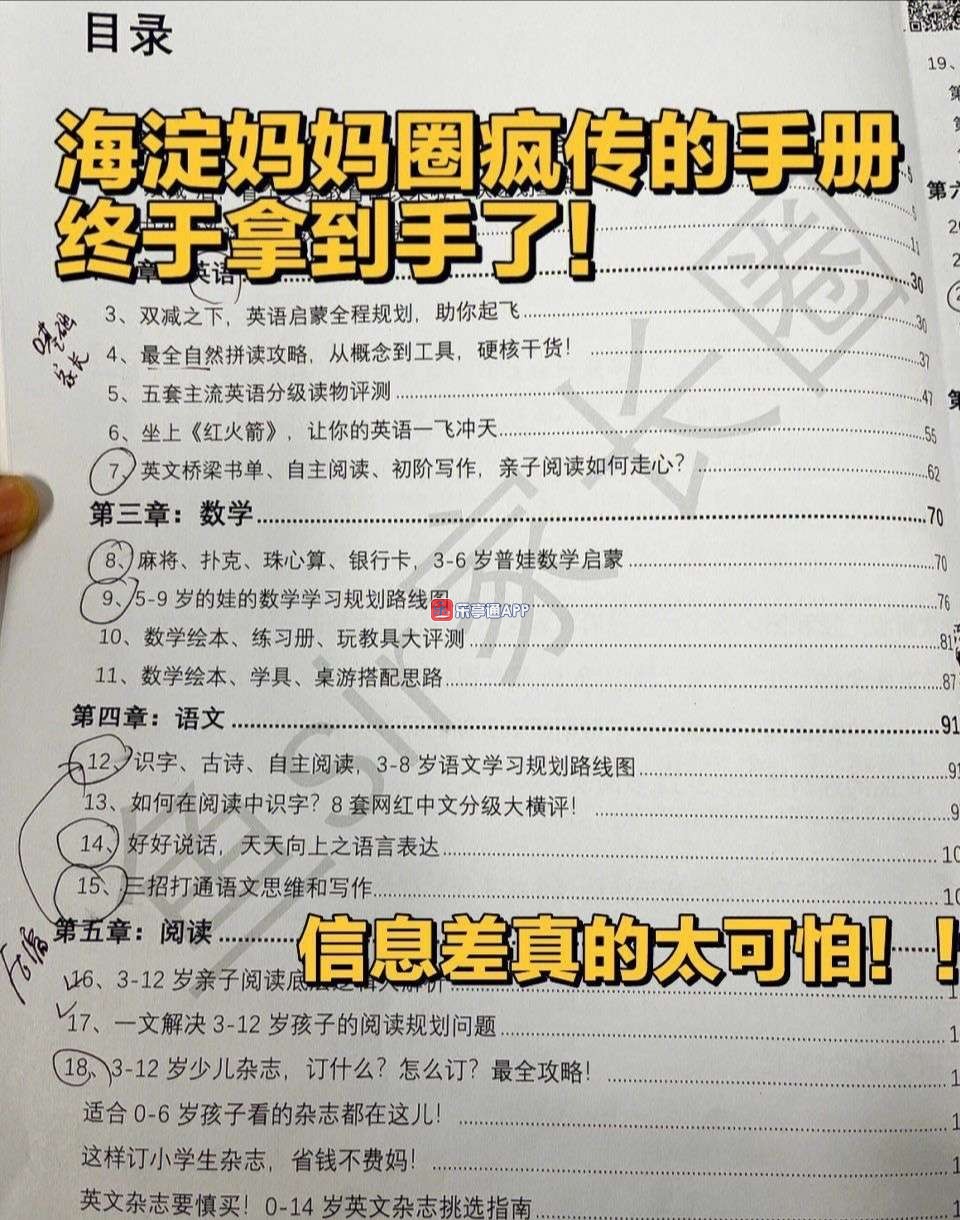 目录
海淀妈妈圈疯传的手册
终于拿到手了！
5
11
章 英语 30
3、双减之下，英语启蒙全程规划，助你起飞 30
4、最全自然拼读攻略，从概念到工具，硬核干货！ 37
5、五套主流英语分级读物评测 47
6、坐上《红火箭》，让你的英语一飞冲天 55
7、英文桥梁书单、自主阅读、初阶写作，亲子阅读如何走心？ 62
第三章：数学 70
8、麻将、扑克、珠心算、银行卡，3-6 岁普娃数学启蒙 70
9、5-9 岁的娃的数学学习规划路线图 76
乐享通APP
10、数学绘本、练习册、玩教具大评测 81
11、数学绘本、学具、桌游搭配思路 87
第四章：语文 91
12、识字、古诗、自主阅读，3-8 岁语文学习规划路线图 91
13、如何在阅读中识字？8 套网红中文分级大横评！ 9
14、好好说话，天天向上之语言表达 10
15、三招打通语文思维和写作 10
第五章：阅读
信息差真的太可怕！！
16、3-12 岁亲子阅读底层逻辑大解析 1
17、一文解决 3-12 岁孩子的阅读规划问题 1
18、3-12 岁少儿杂志，订什么？怎么订？最全攻略！ 1
适合 0-6 岁孩子看的杂志都在这儿！ 1
这样订小学生杂志，省钱不费妈！ 1
英文杂志要慎买！0-14 岁英文杂志挑选指南 1
19、
第
第六
鱼sir家长圈